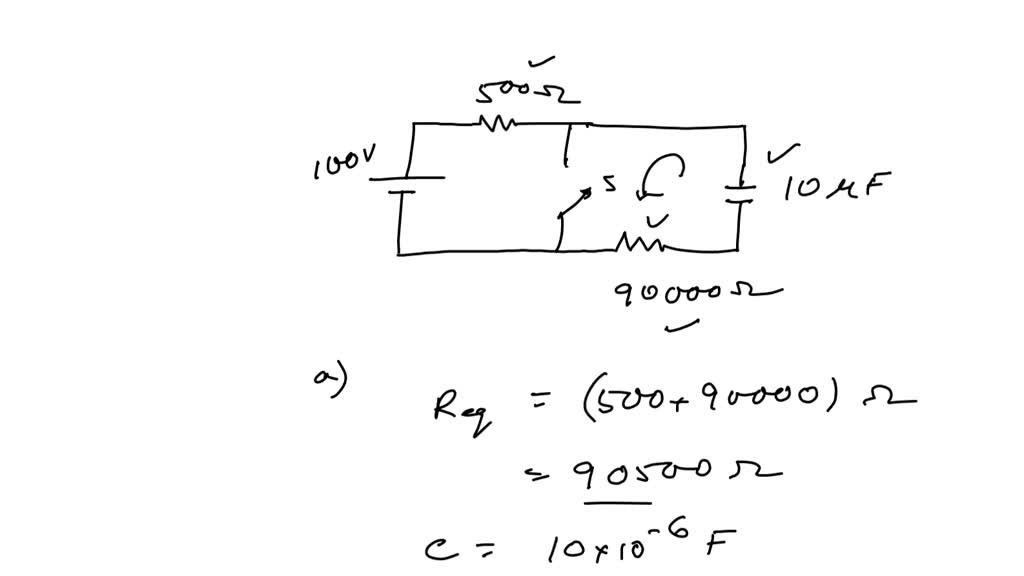 500Ω
100V
S
10 μF
90000Ω
a)
Req = (500+90000) Ω
= 90500 Ω
C = 10×10⁻⁶ F